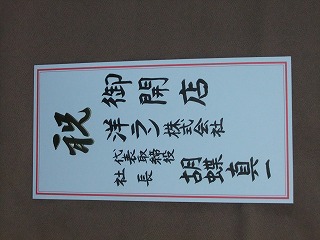 祝
御開店
洋ラン株式会社
代表取締役
社長
胡蝶真一